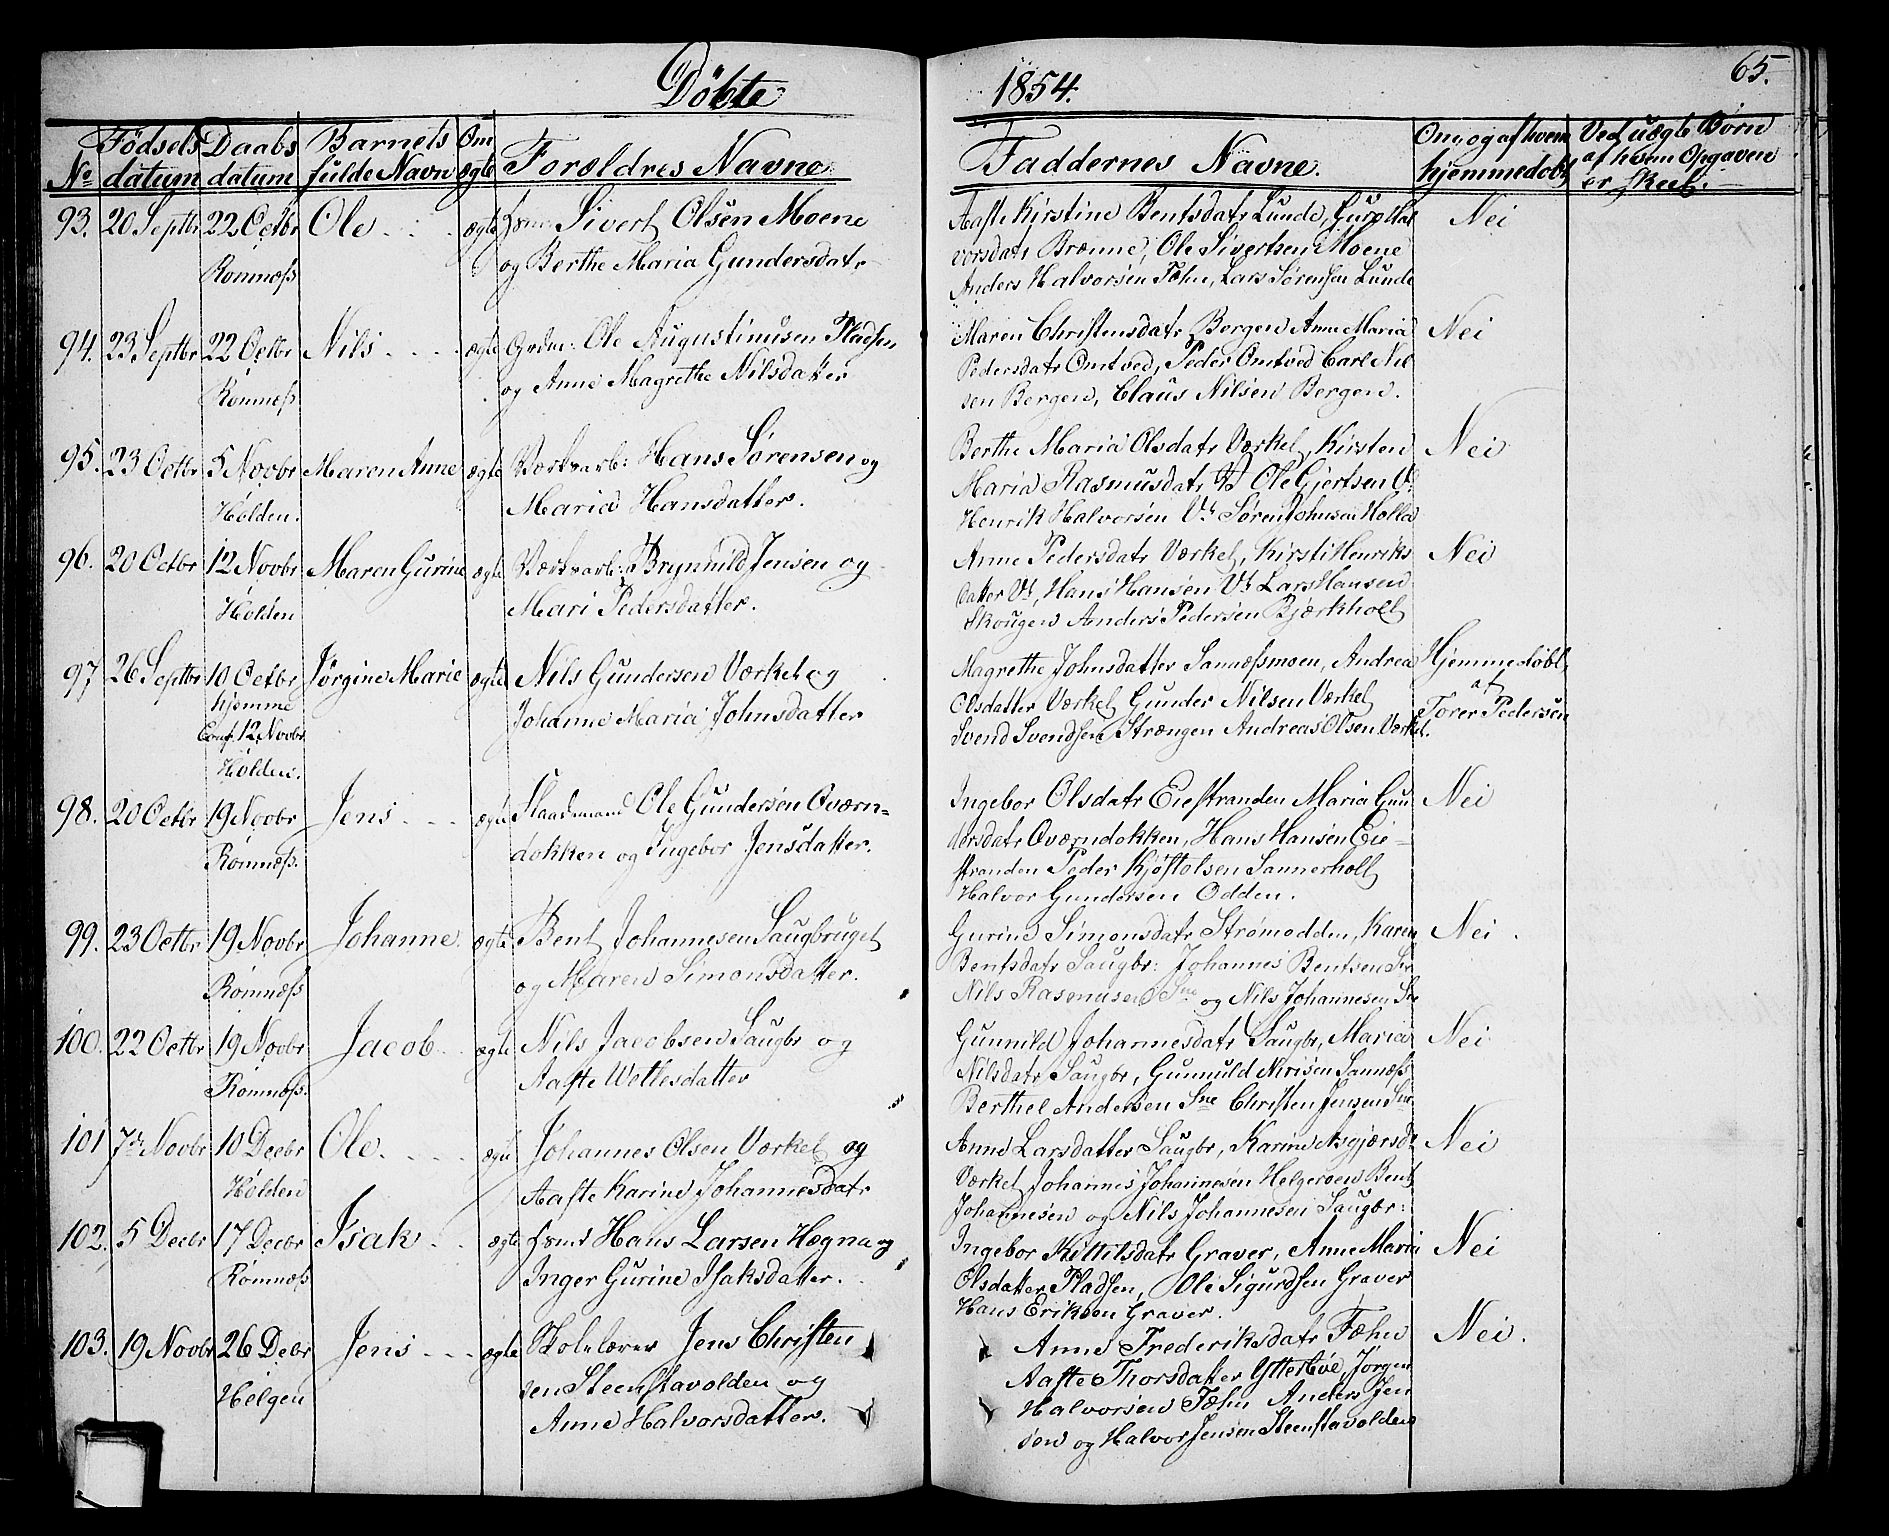 Döbte
1854.
65.
No Födsels datum Daabs datum Barnets fulde Navn Om ægte Forældres Navne Faddernes Navne. Om, og af hvem hjemmedøbt Ved uægte Børn af hvem Opgaven er skeet.
93. 20 Septbr 22 Octbr Ole ægte Sivert Olsen Moene
Romnæss og Berthe Maria Gundersdatr
Aaste Kirstine Bentsdatr Lunde, Guro Hal
vorsdatr Brænne, Ole Sivertsen Moene
Anders Halvorsen Fæhn, Lars Sørensen Lunde
Nei
94. 23 Septbr 22 Octbr Nils ægte Grdm: Ole Augustinusen Pladsen
Romnæss og Anne Magrethe Nilsdatter
Maren Christensdatr Bergen Anne Maria
Pedersdatr Omtved, Peder Omtved Carl Nil
sen Bergen, Claus Nilsen Bergen.
Nei
95. 23 Octbr 5 Novbr Maren Anne ægte Værksarb: Hans Sørensen og
Holden. Maria Hansdatter.
Berthe Maria Olsdatr Værket, Kirsten
Maria Rasmusdatr V Ole Gjertsen Vt
Henrik Halvorsen Vt Søren Johnsen Holla
Nei
96. 20 Octbr 12 Novbr Maren Gurine ægte Værksarb: Brynnild Jensen og
Holden Mari Pedersdatter.
Anne Pedersdatr Værket, Kirsti Henriks
datter Vt, Hans Hansen Vt Lars Hansen
Skougen Anders Pedersen Bjærkholt
Nei
97 26 Septbr 10 Octbr Jørgine Marie ægte Nils Gundersen Værket og
hjemme
Conf. 12 Novbr Johanne Maria Johnsdatter
Holden.
Magrethe Johnsdatter Sannæssmoen, Andrea
Olsdatter Værket Gunder Nilsen Værket
Svend Svendsen Strængen Andreas Olsen Værket.
Hjemmedøbt
af
Torer Pedersen
98. 20 Octbr 19 Novbr Jens ægte Ole Gundersen Oværn-
Romnæss. dokken og Ingebor Jensdatter.
Ingebor Olsdatr Eiestranden Maria Gun
dersdatr Oværndokken, Hans Hansen Eie-
stranden Peder Kjöstolsen Sannerholt
Halvor Gundersen Odden.
Nei
99. 23 Octbr 19 Novbr Johanne. ægte Bent Johannesen Saugbruget
Romnæss og Maren Simonsdatter.
Gurine Simonsdatr Strømodden, Karen
Bentsdatr Saugbr: Johannes Bentsen Sne
Nils Rasmusen Sne og Nils Johannesen Sne
Nei.
100. 22 Octbr 19 Novbr Jacob ægte Nils Jacobsen Saugbr og
Romnæss. Aaste Wettesdatter
Gunnild Johannesdatr Saugbr, Maria
Nilsdatr Saugbr, Gunnuld Nirisen Sannæss
Berthel Andersen Sne Christen Jensen Sne
Nei
101 7de Novbr 10 Decbr Ole. ægte Johannes Olsen Værket og
Holden Aaste Karine Johannesdatr
Anne Larsdatter Saugbr, Karine Asgjærsdr
Værket Johannes Johannesen Helgeroen Bent
Johannesen og Nils Johannesen Saugbr:
Nei
102. 5 Decbr 17 Decbr Isak ægte Hans Larsen Hægna og
Romnæss Inger Gurine Isaksdatter.
Ingebor Kittilsdatr Graver, Anne Maria
Olsdatter Pladsen, Ole Sigurdsen Graver
Hans Eriksen Graver.
Nei
103. 19 Novbr 26 Decbr Jens ægte Skolelærer Jens Christen
Helgen sen Steenstavolden og
Anne Halvorsdatter.
Anne Frederiksdatr Fæhn
Aaste Thorsdatter Ytterböe, Jörgen
Halvorsen Fæhn Anders Jen
sen og Halvor Jensen Steenstavolden
Nei.